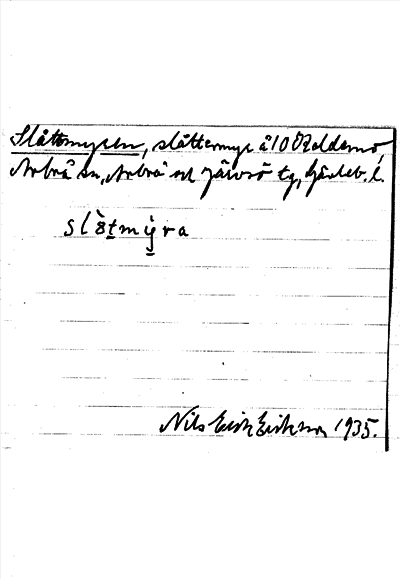 Slåttmyren, slåttermyr å 10
Arbrå sn, Arbrå och Järvsö tg, Gävleb. l.
slòtmýra
Nils Erik Erikson 1935.